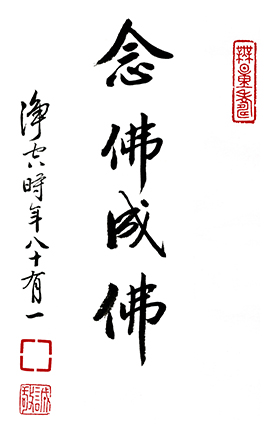 無量壽
念佛成佛
淨空時年八十有一